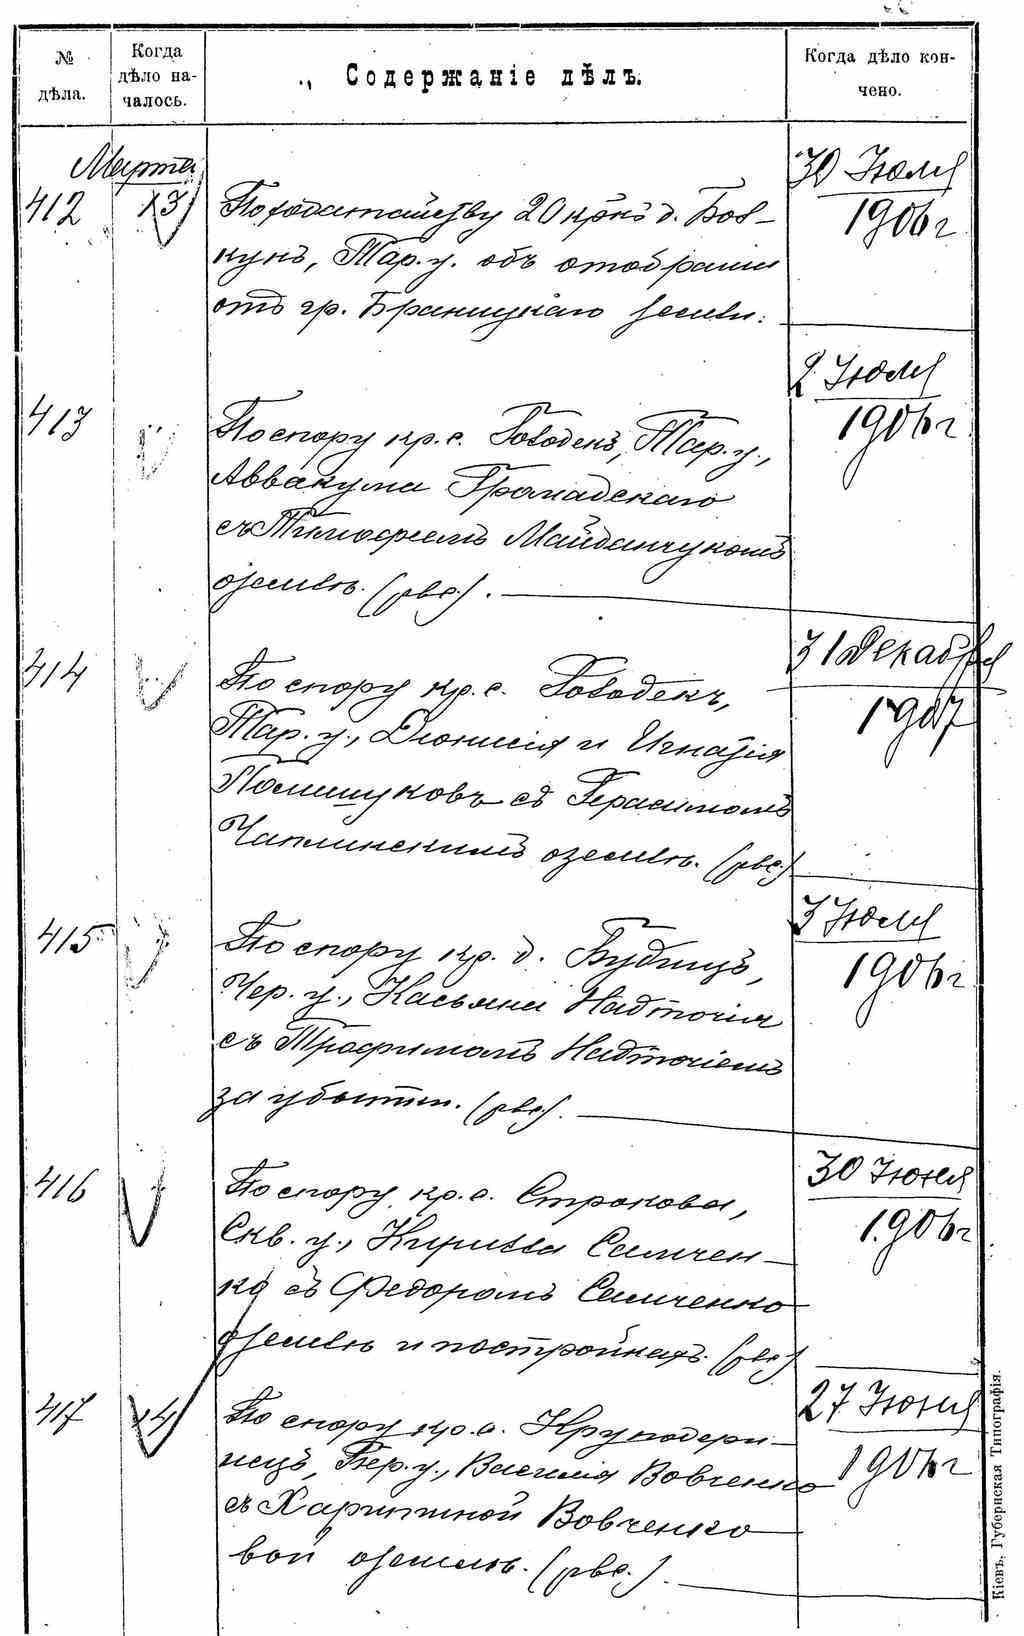 № дѣла.
Когда дѣло на-
чалось.
Содержаніе дѣлъ.
Когда дѣло кон-
чено.
Марта
412 13 По ходатайству 20 кр-нъ д. Бов-
кунъ, Тар. у. объ отобраніи
отъ гр. Браницкаго земли.
30 Іюля
1906 г
413 По спору кр. с. Гододекъ, Тар. у.,
Аввакума Громадскаго
съ Тимофеемъ Майданчукомъ
о землѣ. (рвс.).
2 Іюля
1906 г
414 По спору кр. с. Гододекъ,
Тар. у., Діонисія и Игнатія
Полищуковъ съ Герасимомъ
Чаплинскимъ о землѣ. (рвс.)
31 Декабря
1907
415 По спору кр. д. Будищъ,
Чер. у., Касьяна Надточія
съ Трофимомъ Надточіемъ
за убытки. (рвс.).
3 Іюля
1906 г
416 По спору кр. с. Строкова,
Скв. у., Кирилла Самчен-
ко съ Федоромъ Самченко
о землѣ и постройкахъ. (рвс.)
30 Іюня
1906 г
417 14 По спору кр. с. Круподери-
нецъ, Бер. у., Василія Вовченко
съ Харитиной Вовченко
вой о землѣ. (рвс.).
27 Іюня
1906 г
Кіевъ, Губернская Типографія.